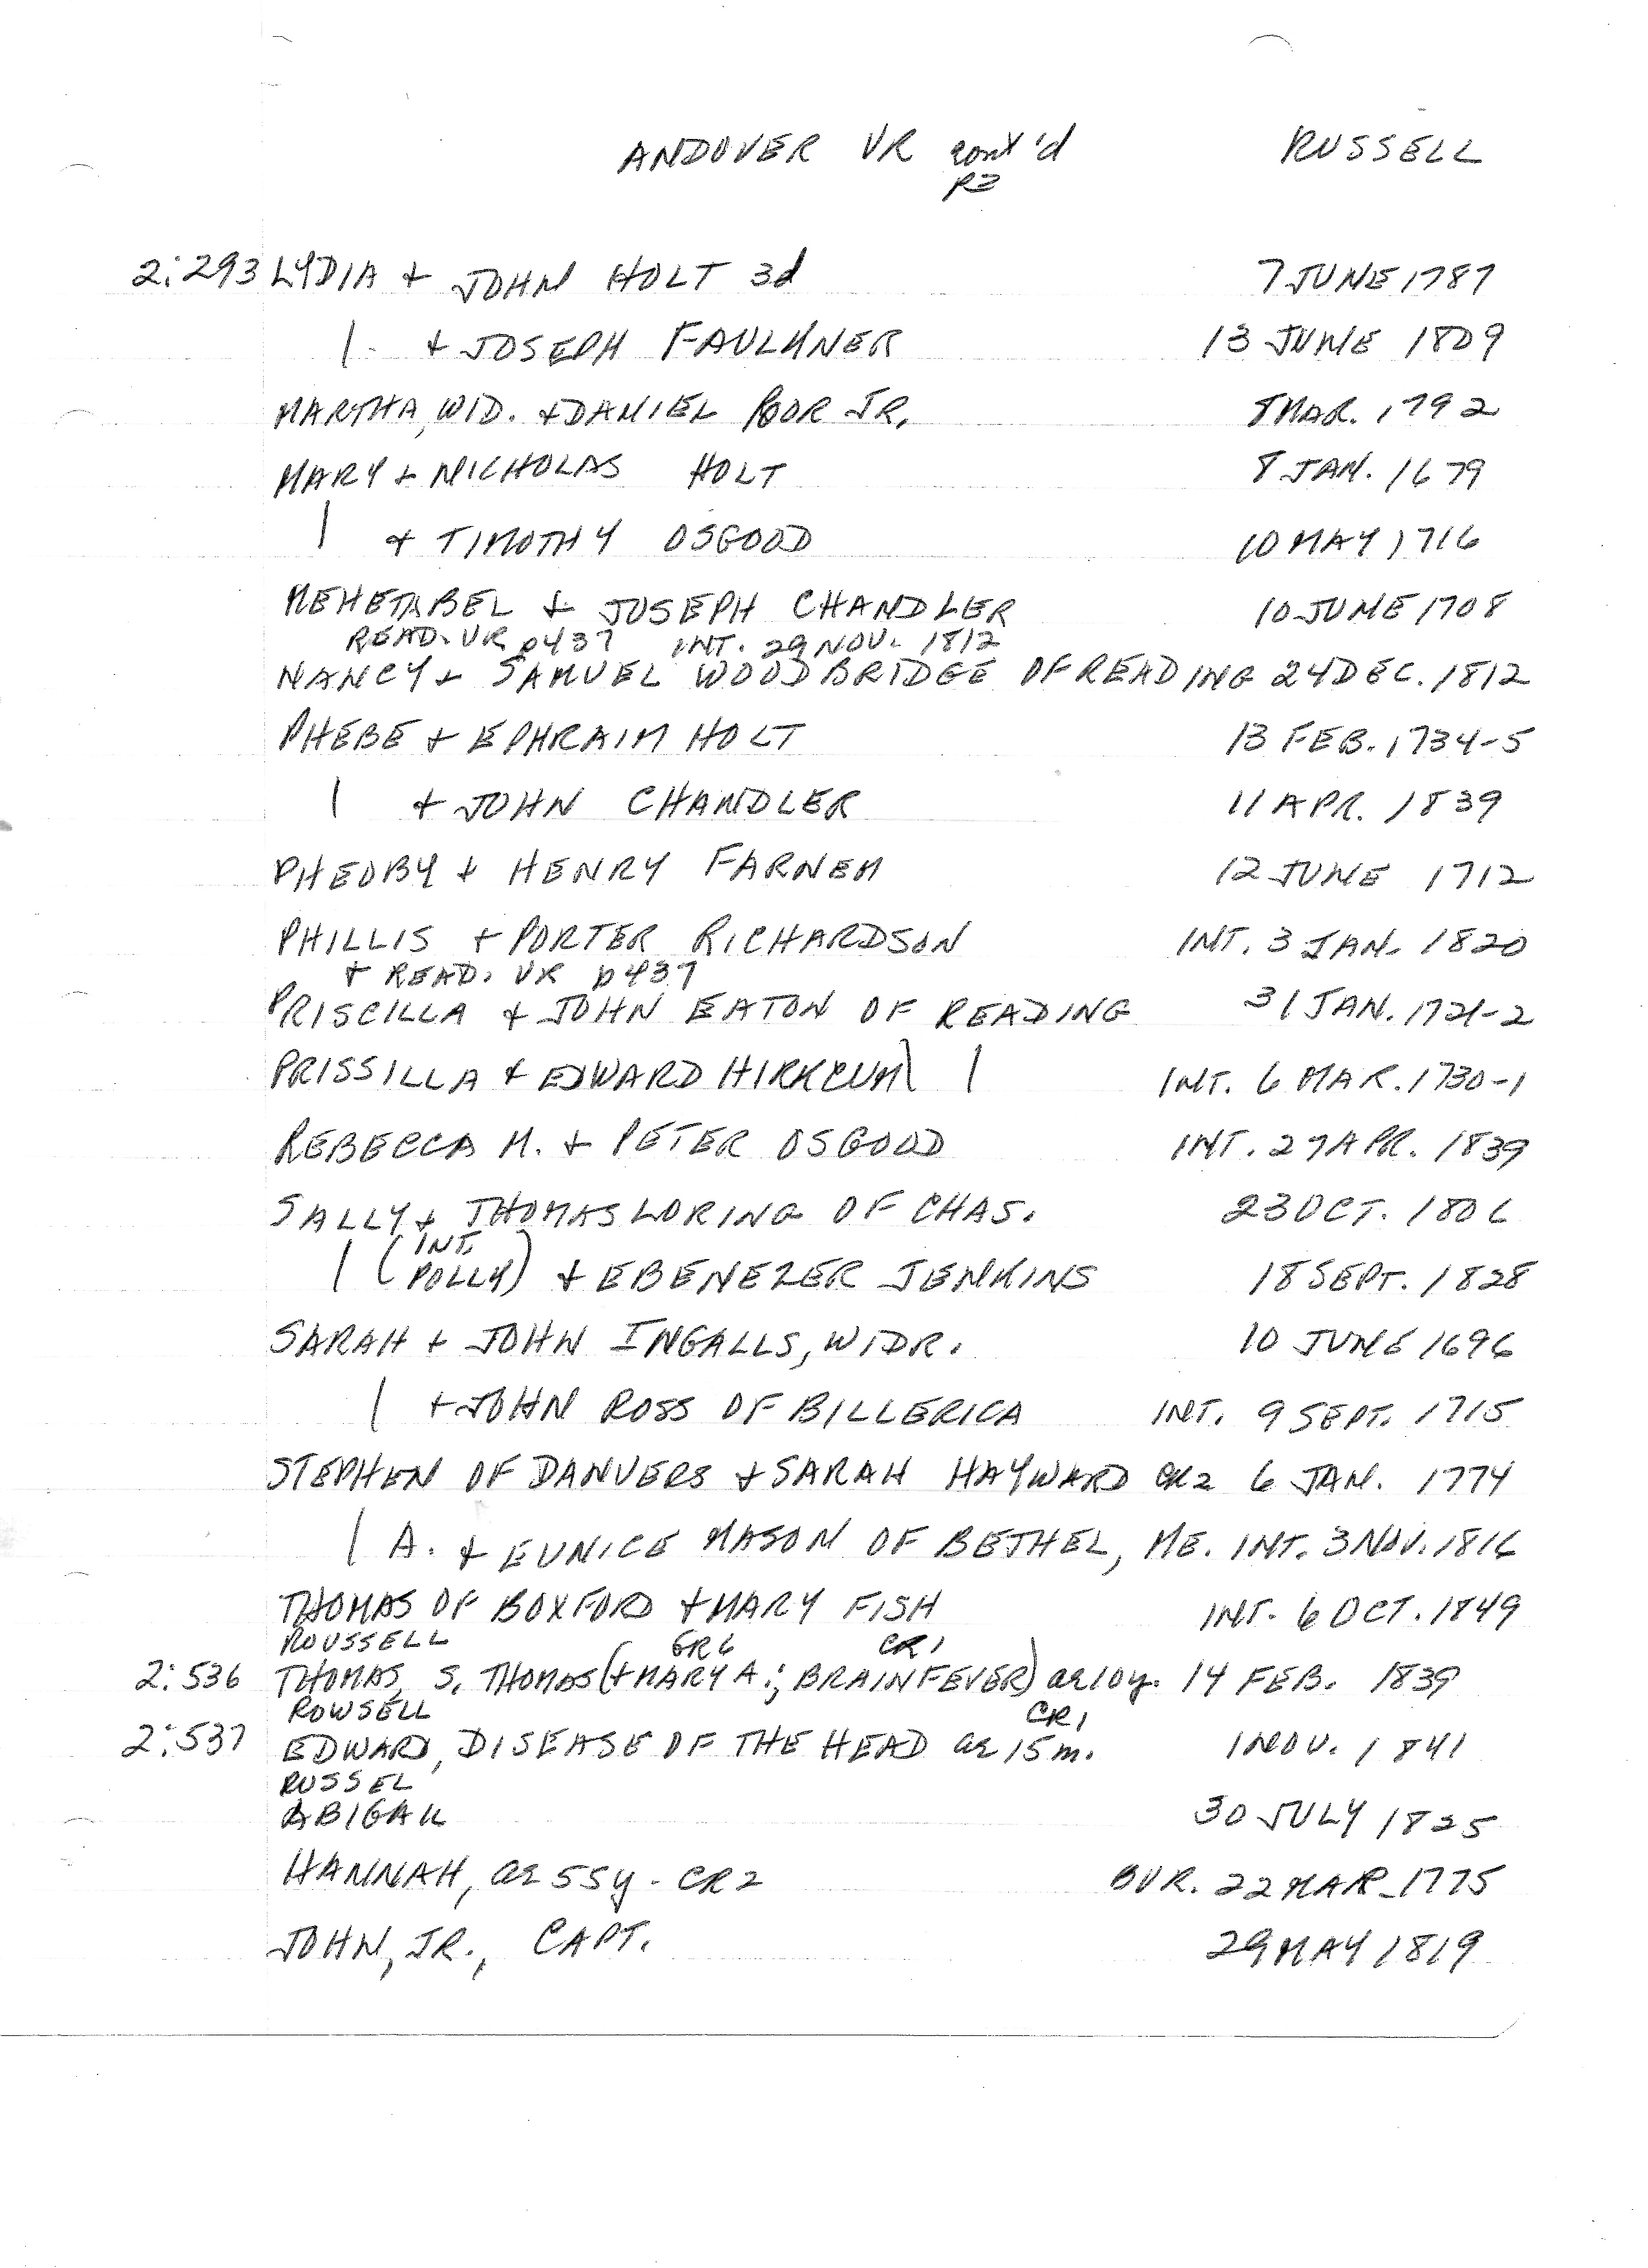 ANDOVER VR cont'd RUSSELL
P3
2:293 LYDIA + JOHN HOLT 3d 7 JUNE 1787
| + JOSEPH FAULKNER 13 JUNE 1809
MARTHA, WID. + DANIEL POOR JR. 8 MAR. 1792
MARY + NICHOLAS HOLT 8 JAN. 1679
| + TIMOTHY OSGOOD 10 MAY 1716
MEHETABEL + JOSEPH CHANDLER 10 JUNE 1708
READ. VR p437 INT. 29 NOV. 1812
NANCY + SAMUEL WOODBRIDGE OF READING 24 DEC. 1812
PHEBE + EPHRAIM HOLT 13 FEB. 1734-5
| + JOHN CHANDLER 11 APR. 1839
PHEOBY + HENRY FARNEM 12 JUNE 1712
PHILLIS + PORTER RICHARDSON INT. 3 JAN. 1820
+ READ. VR p437
PRISCILLA + JOHN EATON OF READING 31 JAN. 1721-2
PRISSILLA + EDWARD | INT. 6 MAR. 1730-1
REBECCA M. + PETER OSGOOD INT. 27 APR. 1839
SALLY + THOMAS LORING OF CHAS. 23 OCT. 1806
| (INT. POLLY) + EBENEZER JENKINS 18 SEPT. 1828
SARAH + JOHN INGALLS, WIDR. 10 JUNE 1696
| + JOHN ROSS OF BILLERICA INT. 9 SEPT. 1715
STEPHEN OF DANVERS + SARAH HAYWARD CR2 6 JAN. 1774
| A. + EUNICE MASON OF BETHEL, ME. INT. 3 NOV. 1816
THOMAS OF BOXFORD + MARY FISH INT. 6 OCT. 1849
ROUSSELL GR6 CR1
2:536 THOMAS, S. THOMAS (+ MARY A.; BRAIN FEVER) ae 10y. 14 FEB. 1839
ROWSELL CR1
2:537 EDWARD, DISEASE OF THE HEAD ae 15m. 1 NOV. 1841
RUSSEL
ABIGAIL 30 JULY 1825
HANNAH, ae 55y. CR2 BUR. 22 MAR. 1775
JOHN, JR., CAPT. 29 MAY 1819